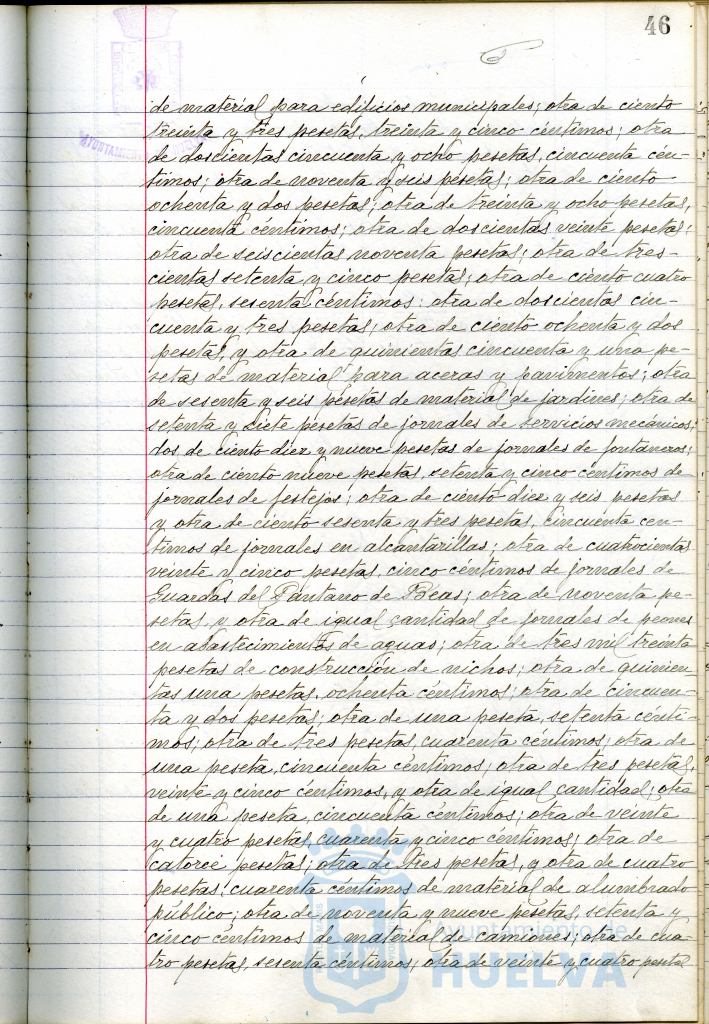 46
de material para edificios municipales; otra de ciento
treinta y tres pesetas, treinta y cinco céntimos; otra
de doscientas cincuenta y ocho pesetas, cincuenta cén-
timos; otra de noventa y seis pesetas; otra de ciento
ochenta y dos pesetas; otra de treinta y ocho pesetas,
cincuenta céntimos; otra de doscientas veinte pesetas;
otra de seiscientas noventa pesetas; otra de tres-
cientas setenta y cinco pesetas; otra de ciento cuatro
pesetas, sesenta céntimos; otra de doscientas cin-
cuenta y tres pesetas; otra de ciento ochenta y dos
pesetas, y otra de quinientas cincuenta y una pe-
setas de material para aceras y pavimentos; otra
de sesenta y seis pesetas de material de jardines; otra de
setenta y siete pesetas de jornales de servicios mecánicos;
dos de ciento diez y nueve pesetas de jornales de fontaneros;
otra de ciento nueve pesetas, setenta y cinco céntimos de
jornales de festejos; otra de ciento diez y seis pesetas
y otra de ciento sesenta y tres pesetas, cincuenta cén-
timos de jornales en alcantarillas; otra de cuatrocientas
veinte y cinco pesetas, cinco céntimos de jornales de
Guardas del Pantano de Beas; otra de noventa pe-
setas, y otra de igual cantidad de jornales de peones
en abastecimientos de aguas; otra de tres mil treinta
pesetas de construcción de nichos; otra de quinien-
tas una pesetas, ochenta céntimos; otra de cincuen-
ta y dos pesetas; otra de una peseta, setenta cénti-
mos; otra de tres pesetas, cuarenta céntimos; otra de
una peseta, cincuenta céntimos; otra de tres pesetas,
veinte y cinco céntimos, y otra de igual cantidad; otra
de una peseta, cincuenta céntimos; otra de veinte
y cuatro pesetas, cuarenta y cinco céntimos; otra de
catorce pesetas; otra de tres pesetas, y otra de cuatro
pesetas, cuarenta céntimos de material de alumbrado
público; otra de noventa y nueve pesetas, setenta y
cinco céntimos de material de camiones; otra de cua-
tro pesetas, sesenta céntimos; otra de veinte y cuatro pesetas
Ayuntamiento de
HUELVA